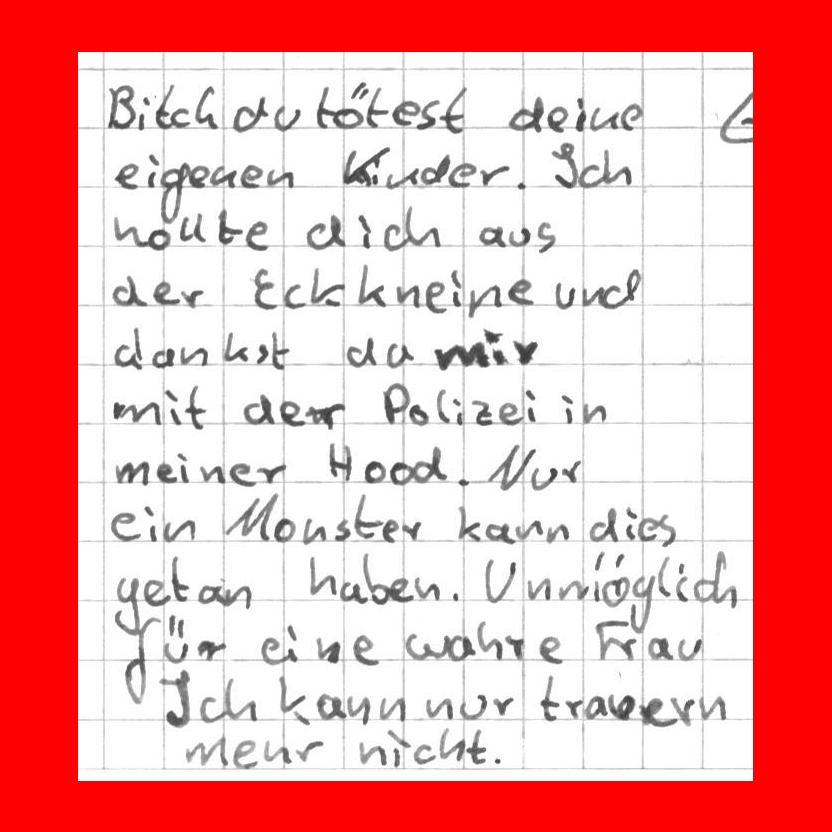 Bitch du tötest deine
eigenen Kinder. Ich
hollte dich aus
der Eckkneipe und
dankst du mir
mit der Polizei in
meiner Hood. Nur
ein Monster kann dies
getan haben. Unmöglich
für eine wahre Frau
Ich kann nur trauern
mehr nicht.